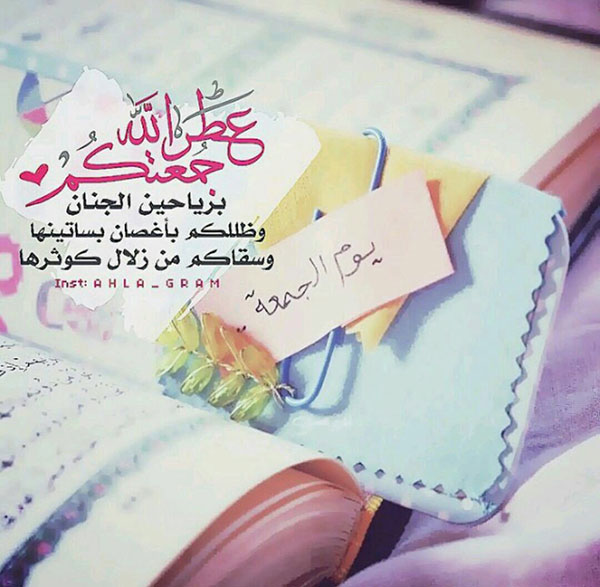 عطر الله
جمعتكم
برياحين الجنان
وظللكم بأغصان بساتينها
وسقاكم من زلال كوثرها
Inst: AHLA_GRAM
يوم الجمعة